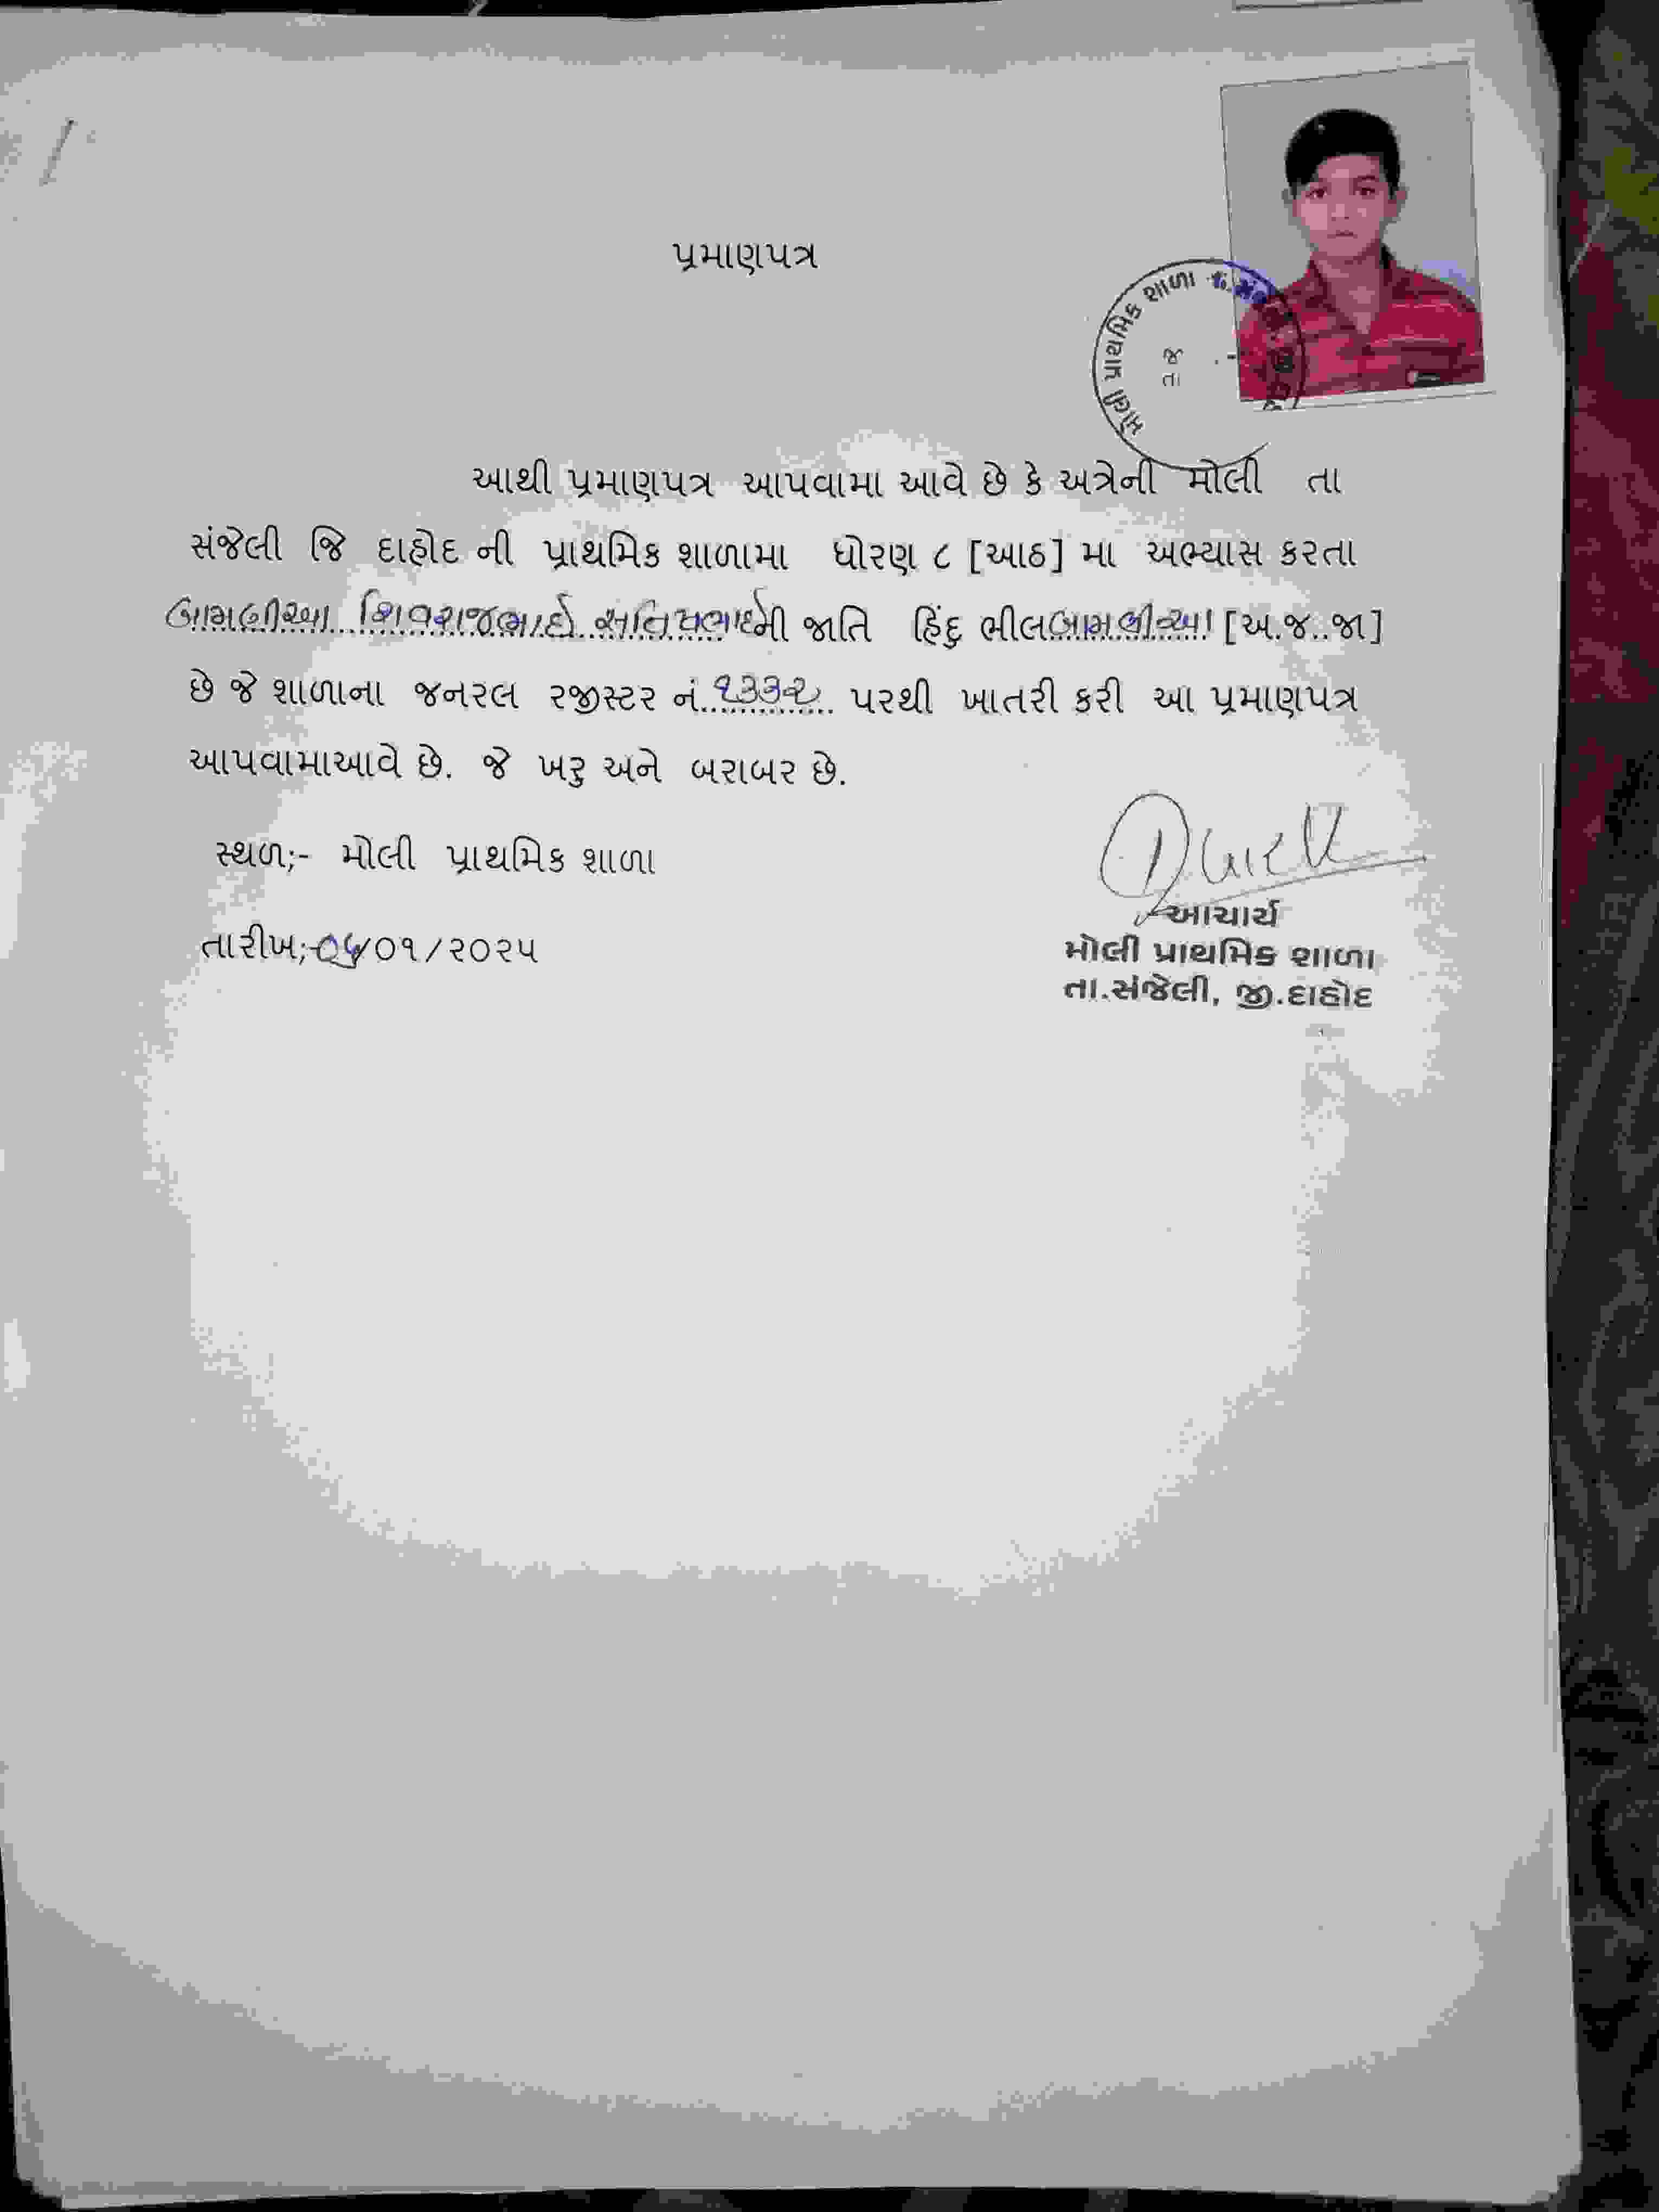 પ્રમાણપત્ર
મોલી પ્રાથમિક શાળા
જ
તા
આથી પ્રમાણપત્ર આપવામા આવે છે કે અત્રેની મોલી તા
સંજેલી જિ દાહોદ ની પ્રાથમિક શાળામા ધોરણ ૮ [આઠ] મા અભ્યાસ કરતા
બામણીઆ શિવરાજભાઈ ની જાતિ હિંદુ ભીલ બામણીઆ [અ.જ..જા]
છે જે શાળાના જનરલ રજીસ્ટર નં. ૧૩૩૨ પરથી ખાતરી કરી આ પ્રમાણપત્ર
આપવામાઆવે છે. જે ખરુ અને બરાબર છે.
સ્થળ;- મોલી પ્રાથમિક શાળા
તારીખ;- /૦૧/૨૦૨૫
આચાર્ય
મોલી પ્રાથમિક શાળા
તા.સંજેલી, જી.દાહોદ